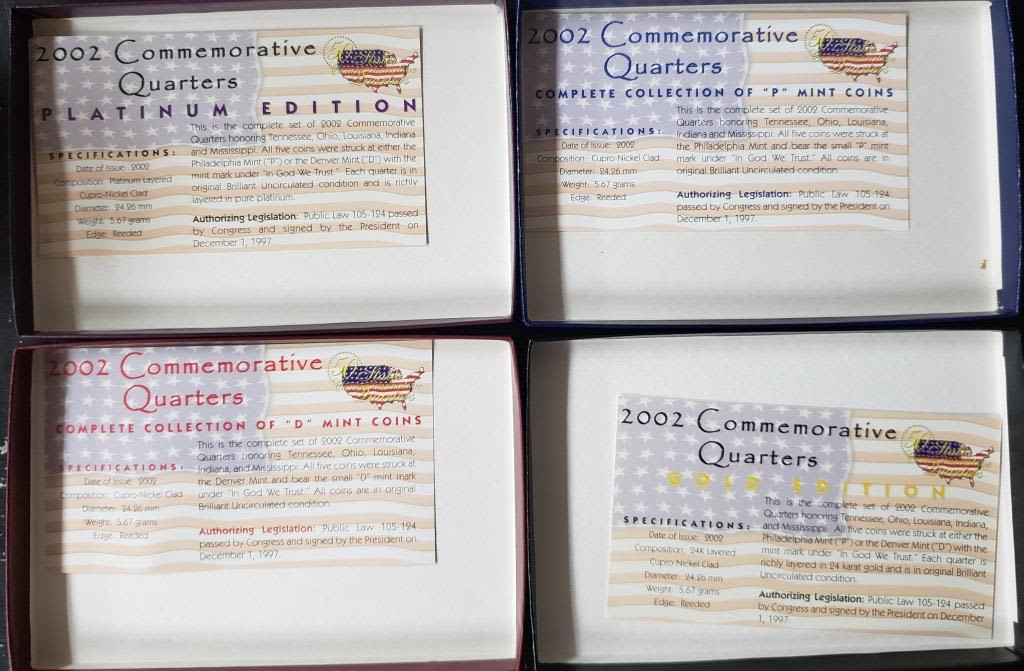 2002 Commemorative
Quarters
PLATINUM EDITION
This is the complete set of 2002 Commemorative
Quarters honoring Tennessee, Ohio, Louisiana, Indiana
and Mississippi. All five coins were struck at either the
Philadelphia Mint ("P") or the Denver Mint ("D") with the
mint mark under "In God We Trust." Each quarter is in
original Brilliant Uncirculated condition and is richly
layered in pure platinum.
SPECIFICATIONS:
Date of Issue: 2002
Composition: Platinum Layered
Cupro-Nickel Clad
Diameter: 24.26 mm
Weight: 5.67 grams
Edge: Reeded
Authorizing Legislation: Public Law 105-124 passed
by Congress and signed by the President on
December 1, 1997.
2002 Commemorative
Quarters
COMPLETE COLLECTION OF "P" MINT COINS
This is the complete set of 2002 Commemorative
Quarters honoring Tennessee, Ohio, Louisiana,
Indiana and Mississippi. All five coins were struck at
the Philadelphia Mint and bear the small "P" mint
mark under "In God We Trust." All coins are in
original Brilliant Uncirculated condition.
SPECIFICATIONS:
Date of Issue: 2002
Composition: Cupro-Nickel Clad
Diameter: 24.26 mm
Weight: 5.67 grams
Edge: Reeded
Authorizing Legislation: Public Law 105-124
passed by Congress and signed by the President on
December 1, 1997.
2002 Commemorative
Quarters
COMPLETE COLLECTION OF "D" MINT COINS
This is the complete set of 2002 Commemorative
Quarters honoring Tennessee, Ohio, Louisiana,
Indiana, and Mississippi. All five coins were struck at
the Denver Mint and bear the small "D" mint mark
under "In God We Trust." All coins are in original
Brilliant Uncirculated condition.
SPECIFICATIONS:
Date of Issue: 2002
Composition: Cupro-Nickel Clad
Diameter: 24.26 mm
Weight: 5.67 grams
Edge: Reeded
Authorizing Legislation: Public Law 105-124
passed by Congress and signed by the President on
December 1, 1997.
2002 Commemorative
Quarters
GOLD EDITION
This is the complete set of 2002 Commemorative
Quarters honoring Tennessee, Ohio, Louisiana, Indiana,
and Mississippi. All five coins were struck at either the
Philadelphia Mint ("P") or the Denver Mint ("D") with the
mint mark under "In God We Trust." Each quarter is
richly layered in 24 karat gold and is in original Brilliant
Uncirculated condition.
SPECIFICATIONS:
Date of Issue: 2002
Composition: 24K Layered
Cupro-Nickel Clad
Diameter: 24.26 mm
Weight: 5.67 grams
Edge: Reeded
Authorizing Legislation: Public Law 105-124 passed
by Congress and signed by the President on December
1, 1997.